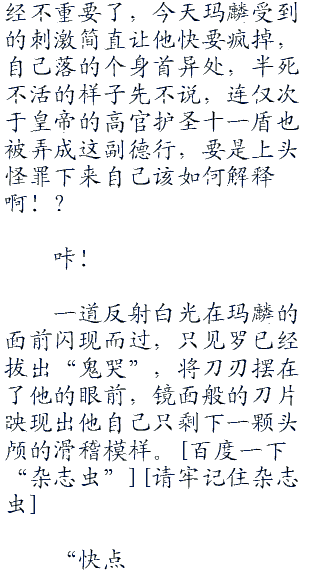 经不重要了，今天玛麟受到
的刺激简直让他快要疯掉，
自己落的个身首异处，半死
不活的样子先不说，连仅次
于皇帝的高官护圣十一盾也
被弄成这副德行，要是上头
怪罪下来自己该如何解释
啊！？
咔！
一道反射白光在玛麟的
面前闪现而过，只见罗已经
拔出“鬼哭”，将刀刃摆在
了他的眼前，镜面般的刀片
映现出他自己只剩下一颗头
颅的滑稽模样。[百度一下
“杂志虫”][请牢记住杂志
虫]
“快点